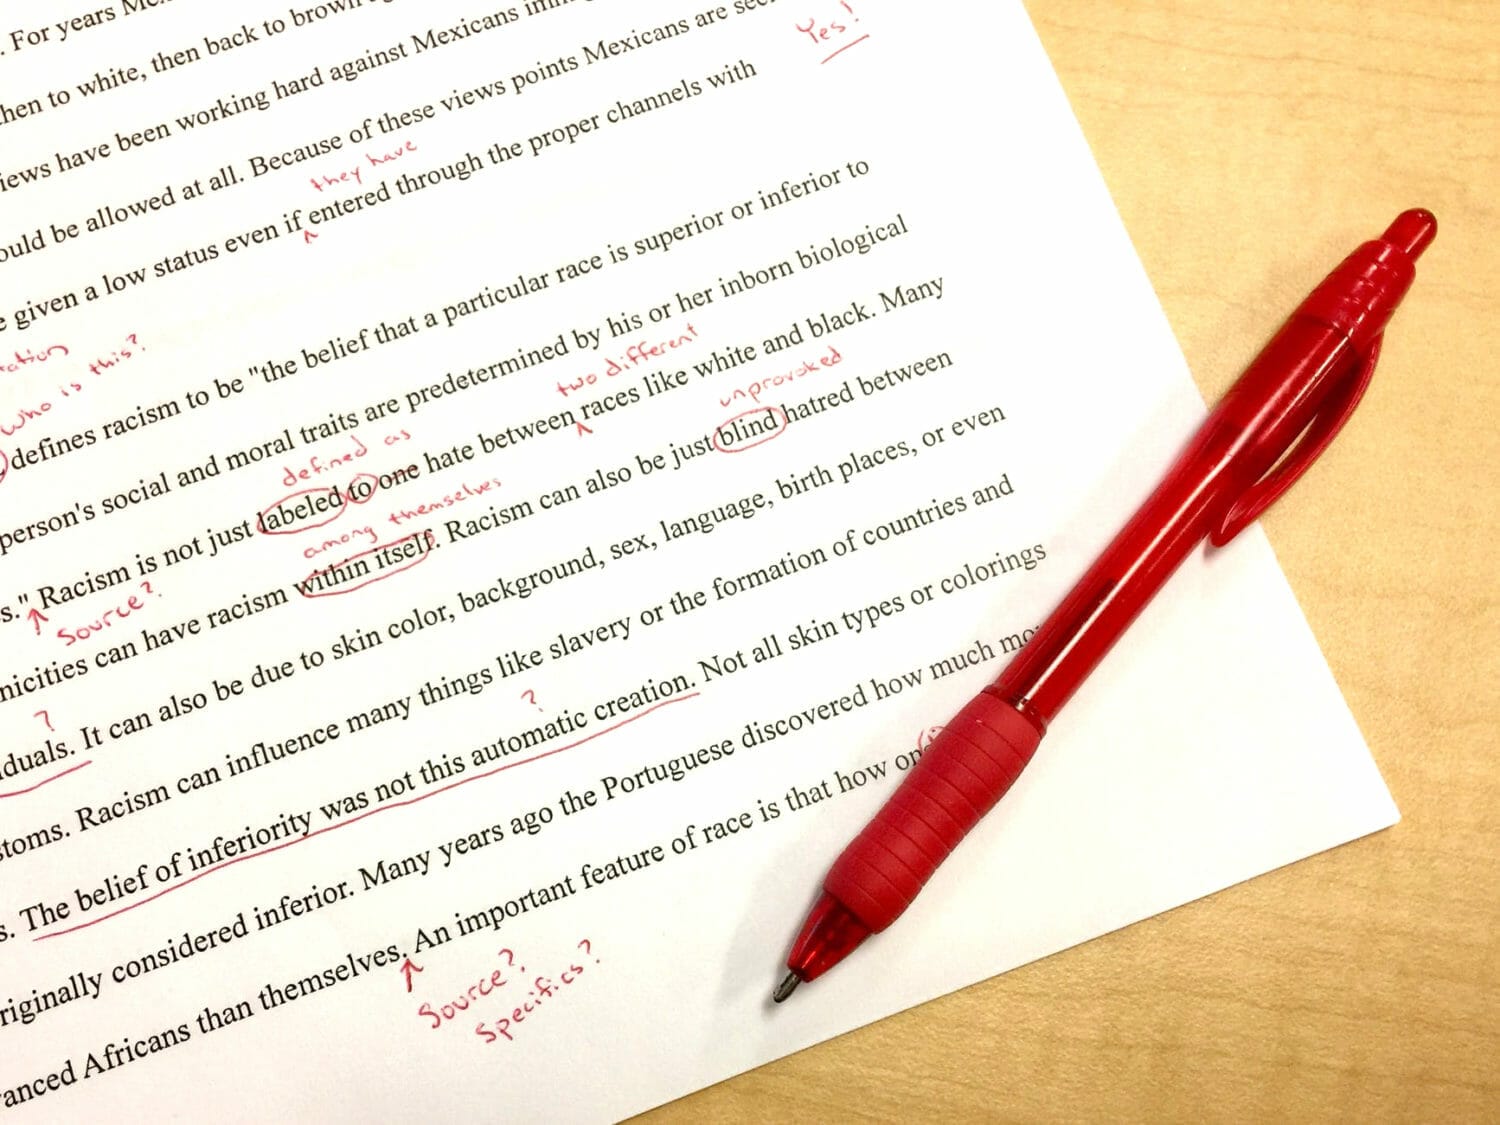 . For years
then to white, then back to brown
iews have been working hard against Mexicans
Yes!
ould be allowed at all. Because of these views points Mexicans are
they have
e given a low status even if entered through the proper channels with
who is this?
defines racism to be "the belief that a particular race is superior or inferior to
person's social and moral traits are predetermined by his or her inborn biological
defined as
two different
s." Racism is not just labeled to one hate between races like white and black. Many
Source?
among themselves
unprovoked
nicities can have racism within itself. Racism can also be just blind hatred between
?
duals. It can also be due to skin color, background, sex, language, birth places, or even
stoms. Racism can influence many things like slavery or the formation of countries and
?
s. The belief of inferiority was not this automatic creation. Not all skin types or colorings
riginally considered inferior. Many years ago the Portuguese discovered how much
vanced Africans than themselves. An important feature of race is that how
Source?
Specifics?